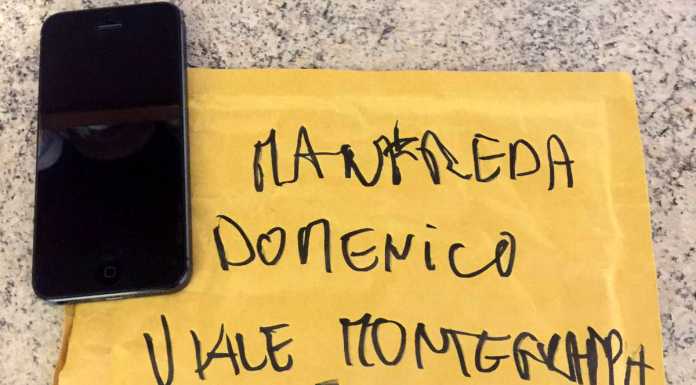 MANFREDA
DOMENICO
VIALE MONTEGRAPPA